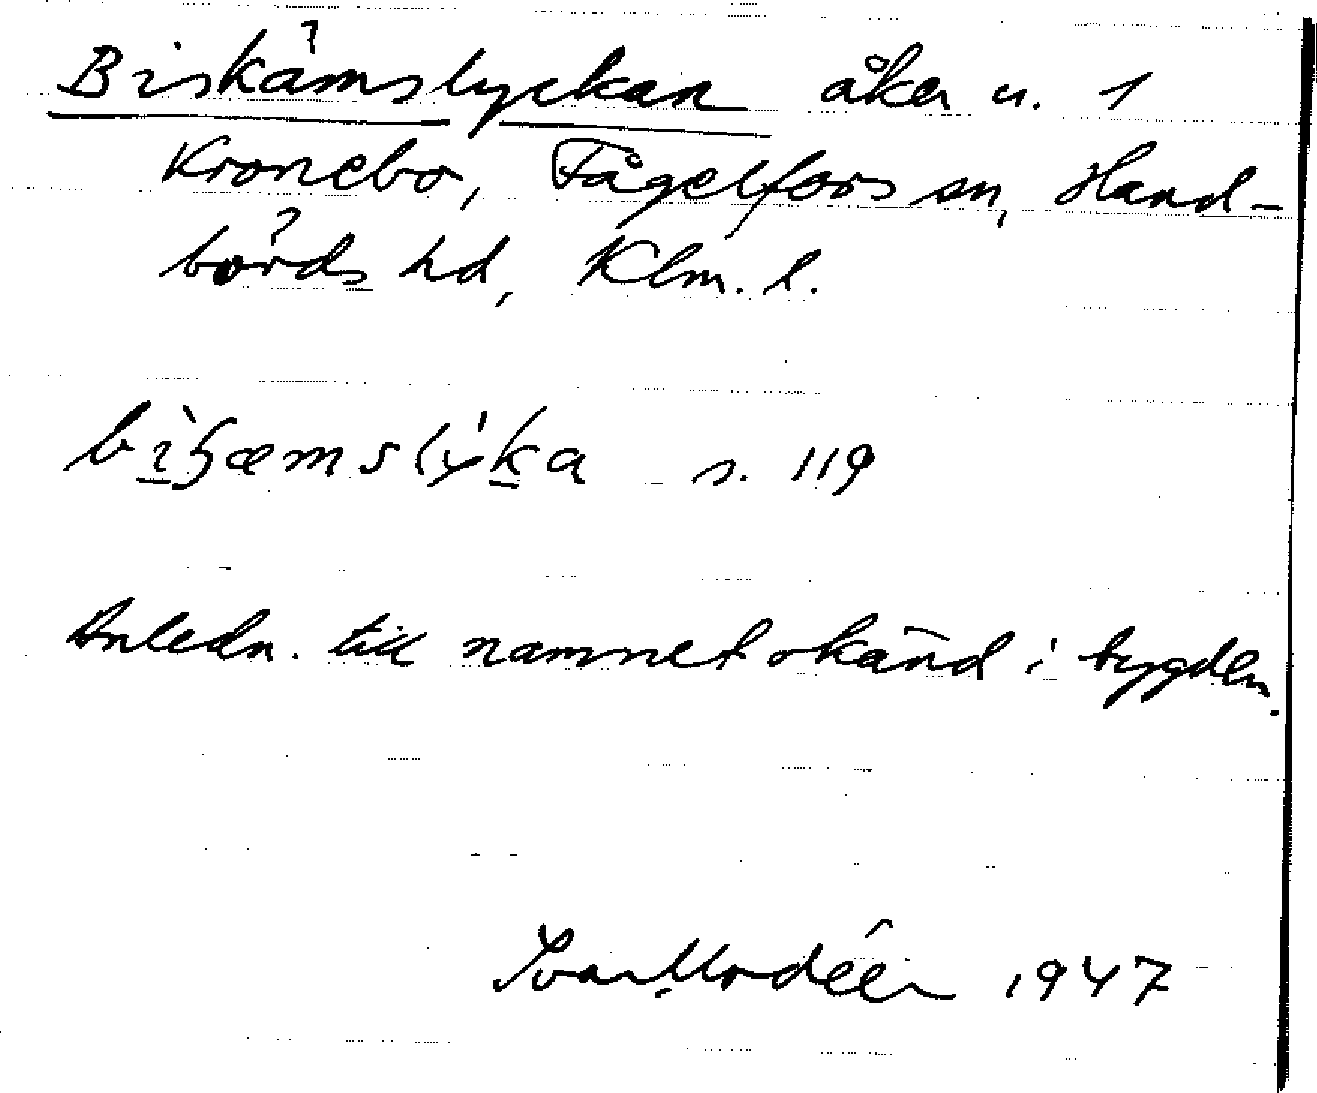 Biskämslyckan åker u. 1
Kronebo, Fågelfors sn, Hand-
börds hd, Klm. l.
s. 119
Anledn. till namnet okänd i bygden.
Ivar Modéer 1947